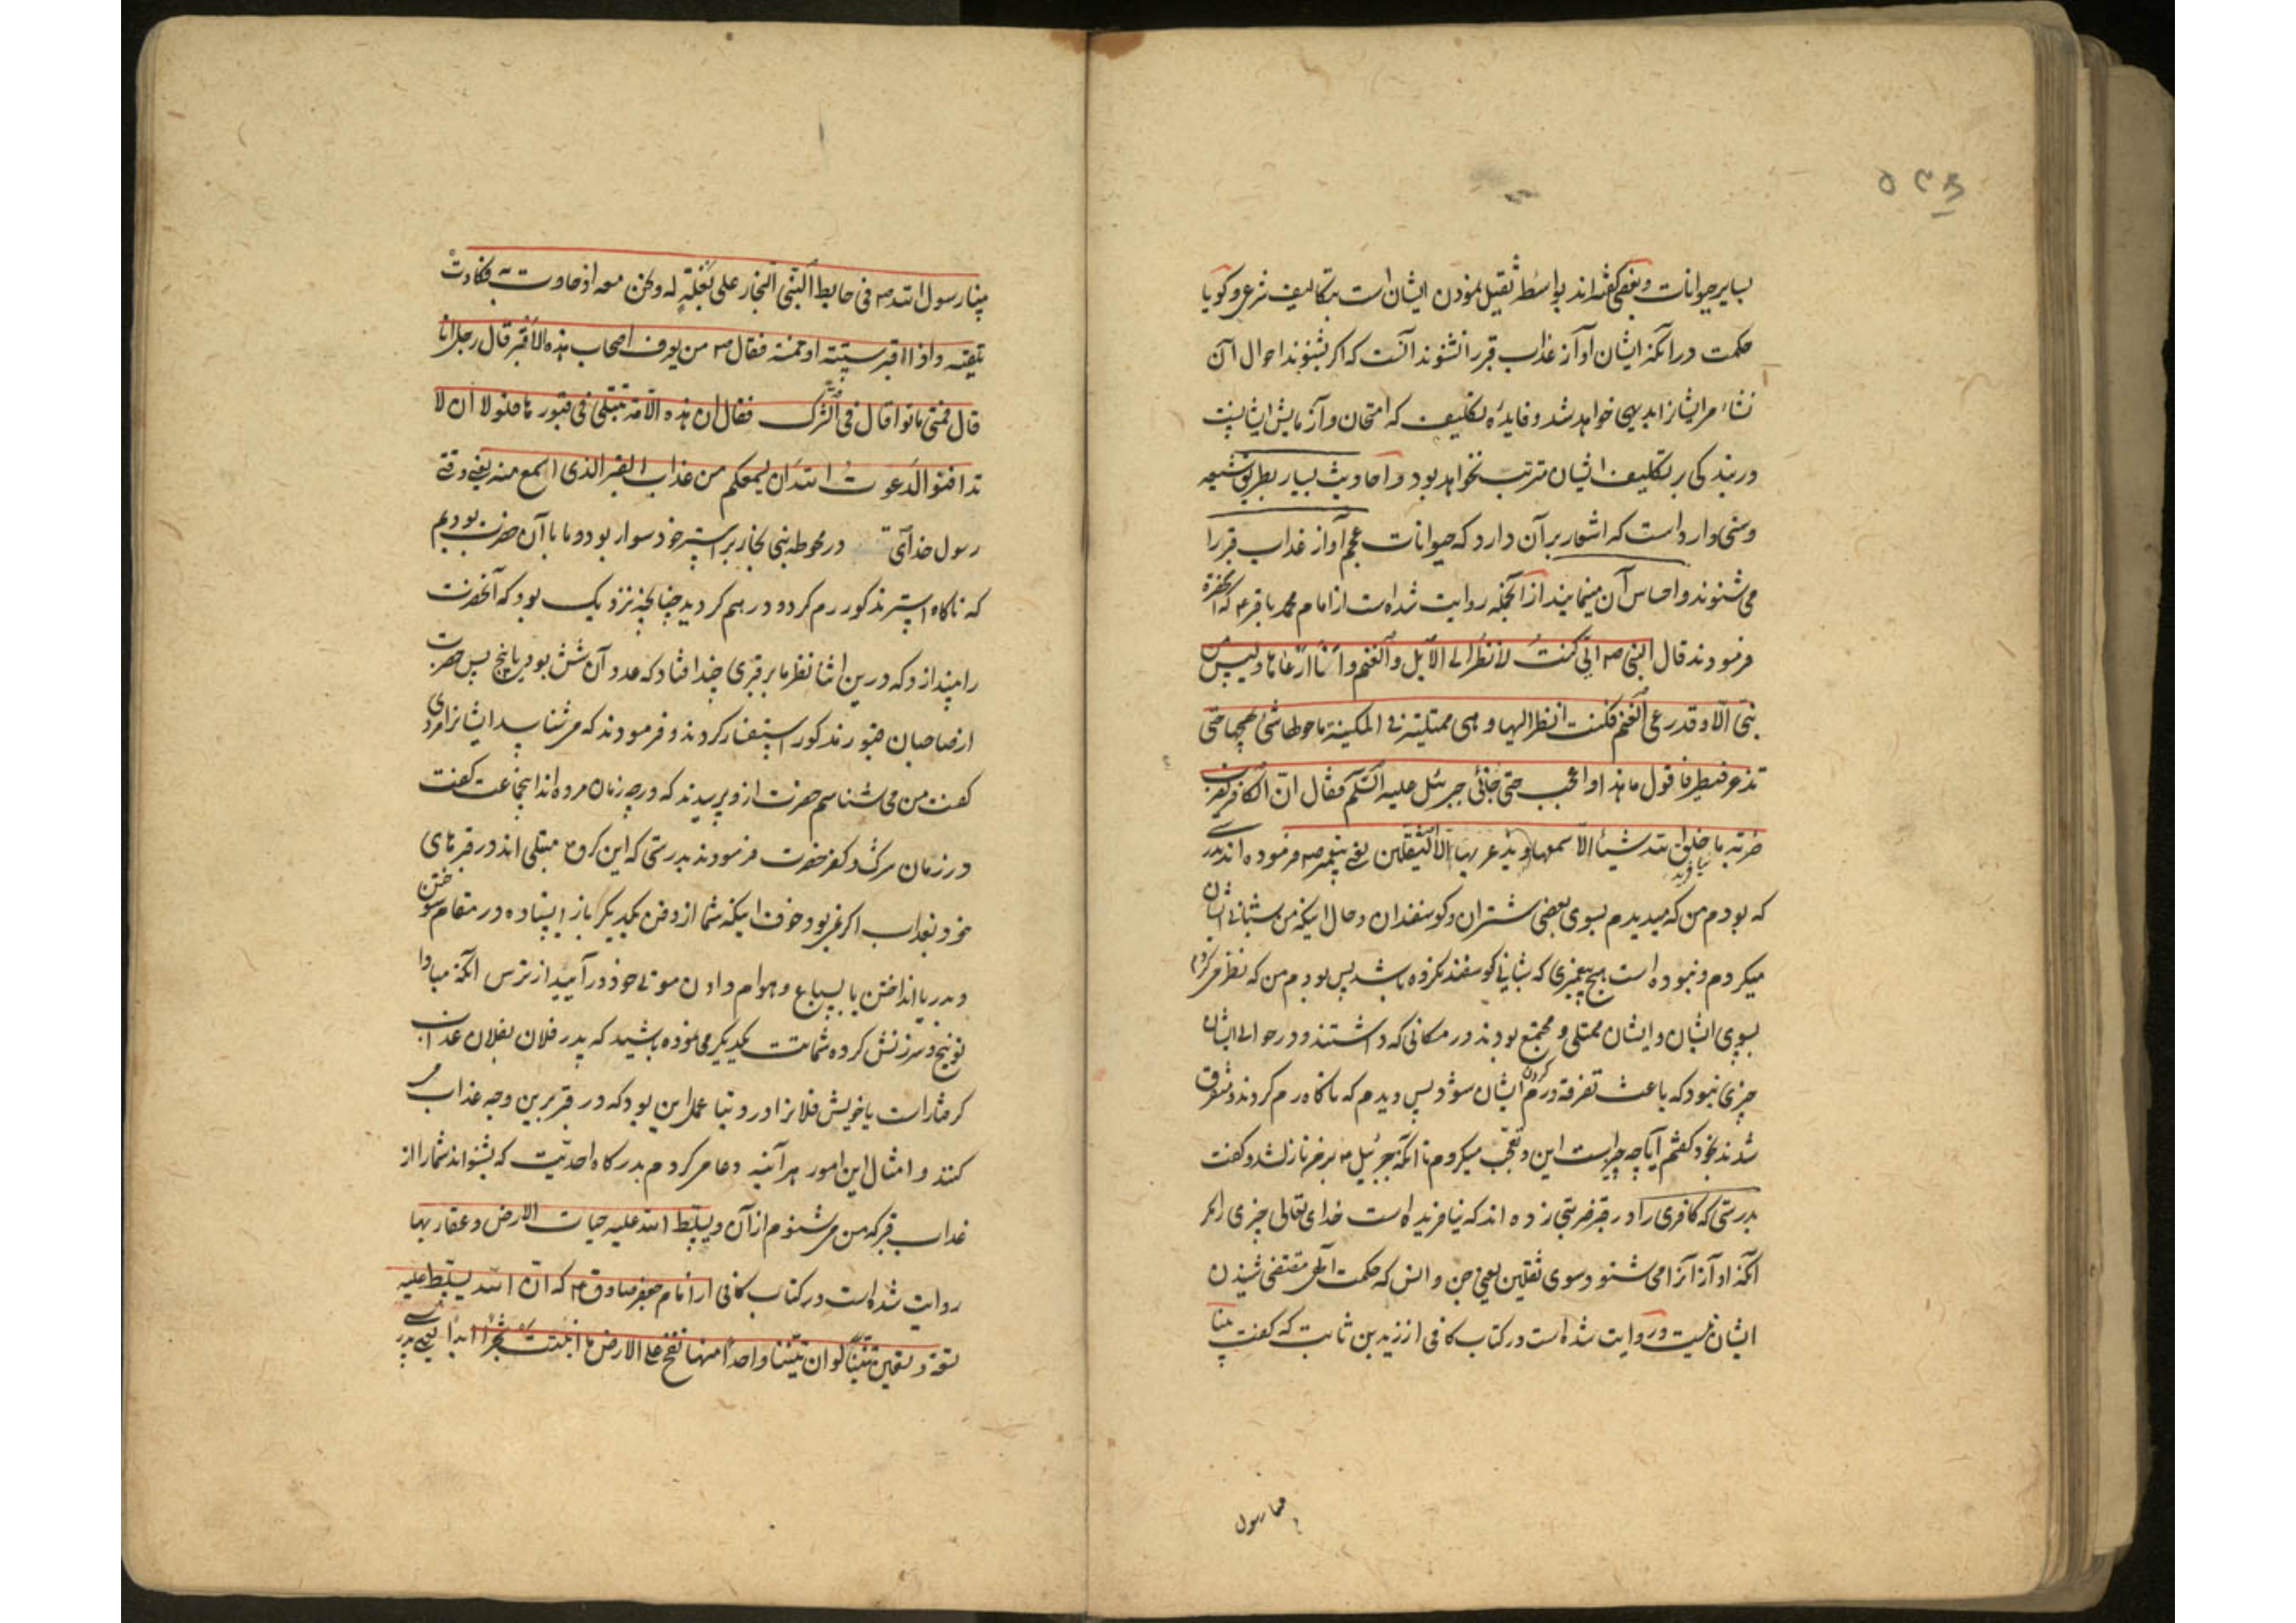 ۵۳۶
بسایر حیوانات و بعضی گفته‌اند بواسطه ثقیل نمودن ایشان است بتکالیف شرعی و کویا
حکمت در انکه ایشان آواز عذاب قبر را نشنوند آنست که اکر بشنوند احوال آن
نشاء مر ایشانرا بدیهی خواهد شد و فایده تکلیف که امتحان و آزمایش ایشانست
در بندکی بر تکلیف ایشان مترتب نخواهد بود و احادیث بسیار بطریق شیعه
و سنی وارد است که اشعار بر آن دارد که حیوانات عجم آواز عذاب قبر را
می شنوند و احساس آن مینمایند از آنجمله روایت شده است از امام محمد باقر ع که آنحضرة
فرمودند قال النبی ص انی کنت لانظر الی الابل والغنم وانا ارعاها ولیس من
نبی الا وقد رعی الغنم فکنت انظر الیها وهی ممتلیة فی المکینة ما حولها شئ یهیجها حتی
تذعر فتطیر فاقول ما هذا واعجب حتی جائنی جبرئیل علیه السلام فقال ان الکافر یضرب
ضربة ما خلق الله شیئا الا سمعها ویذعر بها الا الثقلین یعنی پیغمبر ص فرموده اند بدرستی
که بودم من که میدیدم بسوی بعضی شتران و کوسفندان و حال اینکه من شبانی ایشان
میکردم و نبوده است هیچ پیغمبری که شبانی کوسفند نکرده باشد پس بودم من که نظر میکردم
بسوی ایشان و ایشان ممتلی و مجتمع بودند در مکانی که داشتند و در حوالی ایشان
چیزی نبود که باعث تفرقه و رم کردن ایشان شود پس دیدم که ناکاه رم کردند و متفرق
شدند بخود کفتم آیا چه چیز است این و تعجب میکردم تا آنکه جبرئیل ع بر من نازل شد و کفت
بدرستی که کافری را در قبر ضربتی زده اند که نیافریده است خدای تعالی چیزی را مکر
آنکه آواز آنرا می شنود سوی ثقلین یعنی جن و انس که حکمت الهی مقتضی شنیدن
ایشان نیست و روایت شده است در کتاب کافی از زید بن ثابت که کفت بینا
بینا رسول
بینا رسول الله ص فی حایط لبنی النجار علی بغلة له ونحن معه اذ حادت به فکادت
تلقیه واذا اقبر ستة او خمسة فقال ص من یعرف اصحاب هذه الاقبر قال رجل انا
قال فمتی ماتوا قال فی الشرک فقال ان هذه الامة تبتلی فی قبورها فلولا ان لا
تدافنوا لدعوت الله ان یسمعکم من عذاب القبر الذی اسمع منه یعنی وقتی
رسول خدای در محوطه بنی نجار بر استر خود سوار بود و ما با آن حضرت بودیم
که ناکاه استر مذکور رم کرد و در هم کردید چنانچه نزدیک بود که آنحضرت
را بیندازد که درین اثنا نظر ما بر قبری چند افتاد که عدد آن شش بود یا پنج پس حضرت
از صاحبان قبور مذکور استفسار کردند و فرمودند که می شناسد ایشانرا مردی
کفت من می شناسم حضرت از و پرسیدند که در چه زمان مرده اند اینجماعت کفت
در زمان شرک و کفر حضرت فرمودند بدرستی که این کروه مبتلی اند در قبرهای
خود بعذاب اکر نمی بود خوف اینکه شما از دفن یکدیکر باز ایستاده در مقام سوختن
و بدریا انداختن یا بسباع و هوام دادن موتی خود در آیید از ترس آنکه مبادا
توبیخ و سرزنش کرده شماتت یکدیکر می نموده باشید که پدر فلان بفلان عذاب
کرفتار است یا خویش فلانرا در دنیا عمل این بود که در قبر برین وجه عذاب می
کنند و امثال این امور هر آینه دعا می کردم بدرکاه احدیت که بشنواند شما را از
عذاب قبر که من می شنوم از آن ویسلط الله علیه حیات الارض وعقاربها
روایت شده است در کتاب کافی از امام جعفر صادق ع که ان الله یسلط علیه
تسعة وتسعین تنینا لو ان تنینا واحدا منها نفخ علی الارض ما انبتت شجرا ابدا یعنی بدرستی